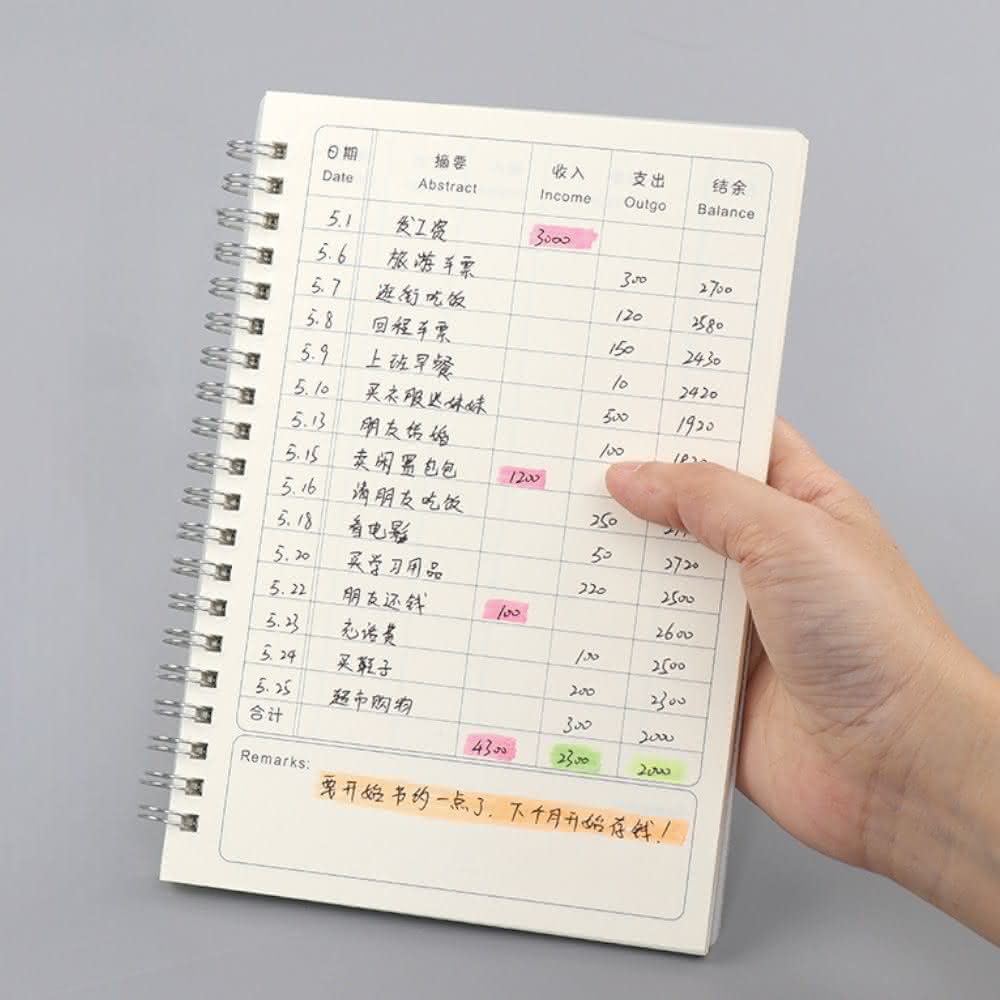 日期 摘要 收入 支出 结余
Date Abstract Income Outgo Balance
5.1 发工资 3000
5.6 旅游车票 300 2700
5.7 逛街吃饭 120 2580
5.8 回程车票 150 2430
5.9 上班早餐 10 2420
5.10 买衣服送妹妹 500 1920
5.13 朋友结婚 100
5.15 卖闲置包包 1200
5.16 请朋友吃饭 250
5.18 看电影 50 2720
5.20 买学习用品 220 2500
5.22 朋友还钱 100 2600
5.23 充话费 100 2500
5.24 买鞋子 200 2300
5.25 超市购物 300 2000
合计 4300 2300 2000
Remarks:
要开始节约一点了，下个月开始存钱！